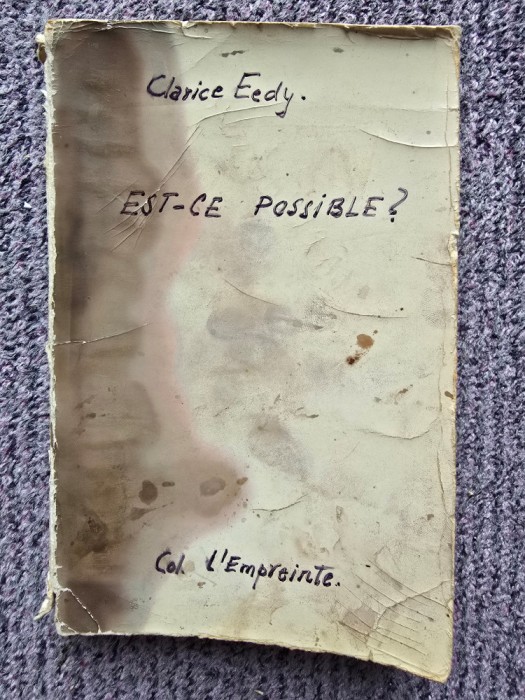 Clarice Eedy.
EST-CE POSSIBLE?
Col. L'Empreinte.